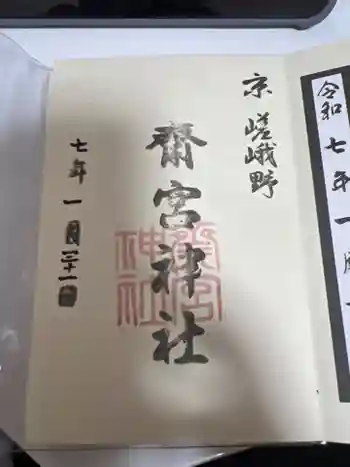 令和七年一月
京 嵯峨野
齋宮神社
七年 一月三十一日
齋宮
神社